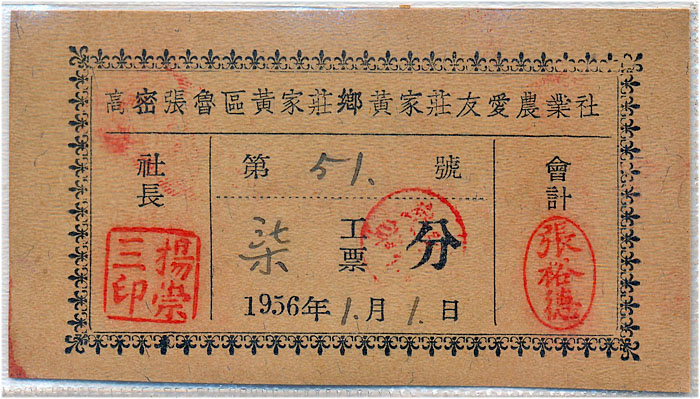 高密張魯區黃家莊鄉黃家莊友愛農業社
社長
揚崇三印
第 51. 號
柒 工票 分
1956年 1.月 1.日
會計
張裕德